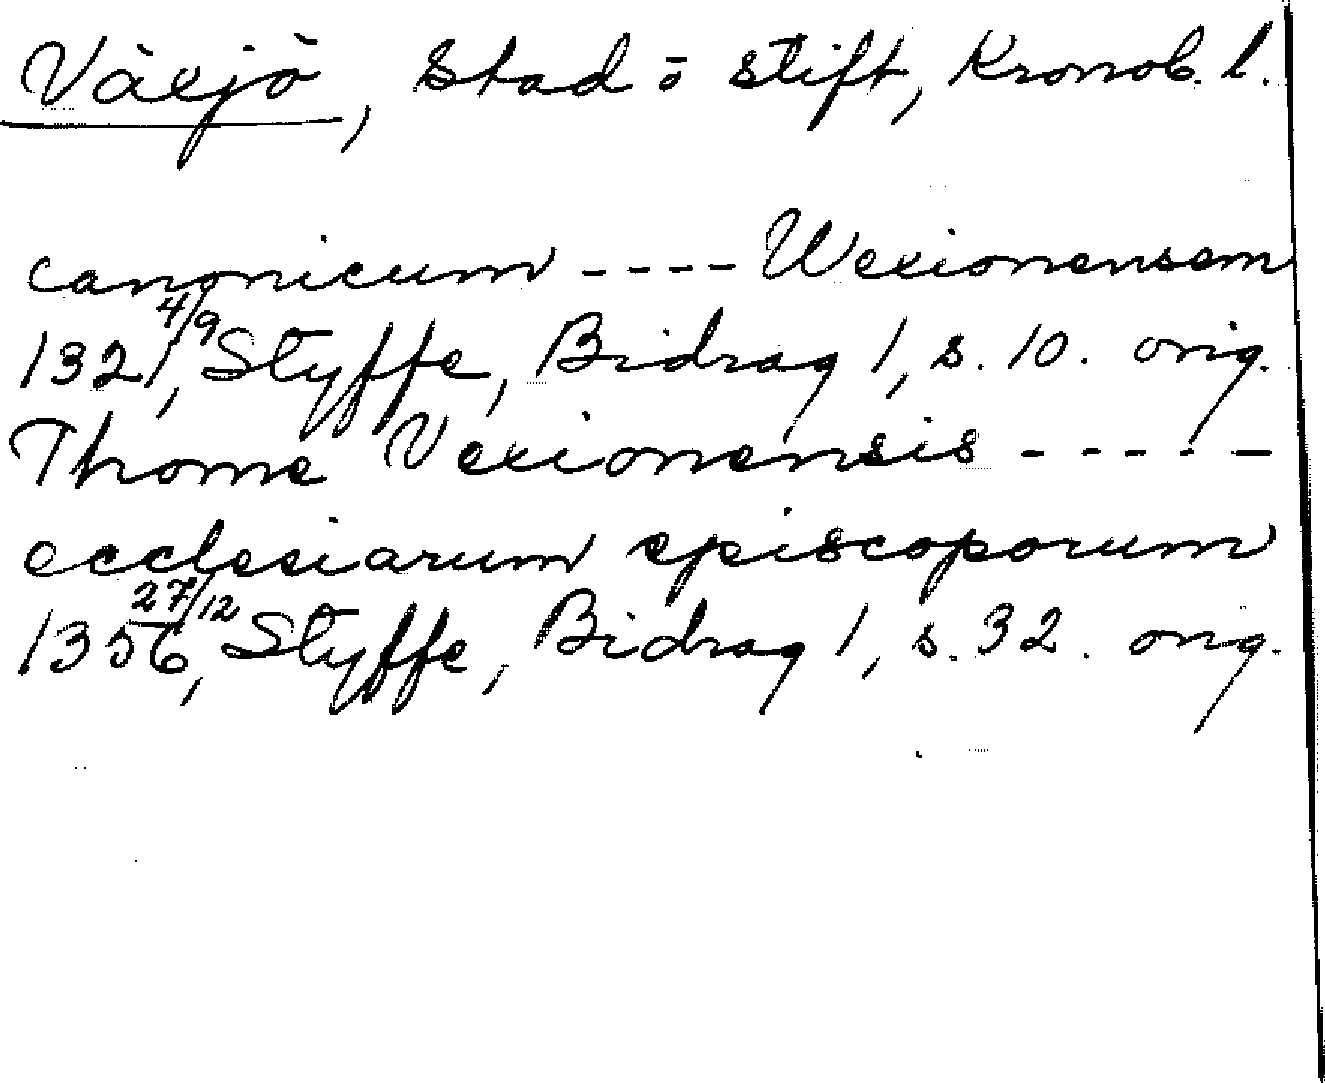 Växjö, Stad o Stift, Kronob. l.
canonicum ---- Wexionensem
1321 4/9, Styffe, Bidrag 1, s. 10. orig.
Thome Vexionensis -----
ecclesiarum episcoporum
1356 27/12, Styffe, Bidrag 1, s. 32. orig.